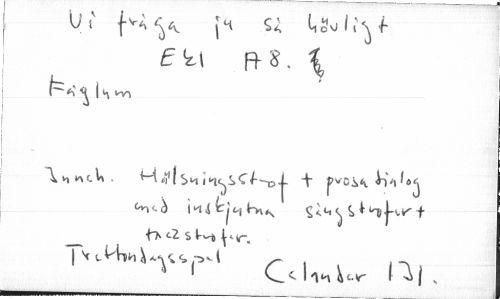 Vi fråga ju så hövligt
Ek1 A8.
Fåglum
Inneh. Hälsningsstrof + prosadialog
med inskjutna sångstrofer +
tackstrofer.
Trettondagsspel
Celander 131.